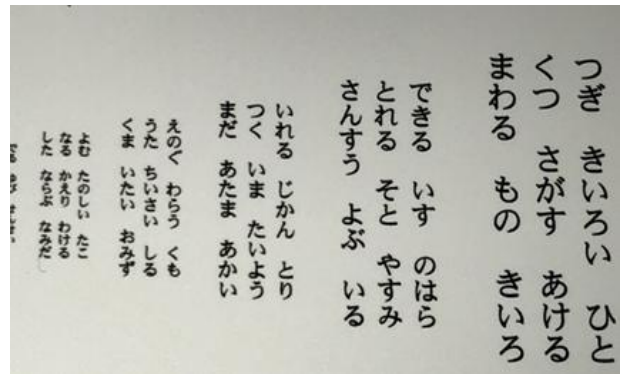 つぎ きいろい ひと
くつ さがす あける
まわる もの きいろ
できる いす のはら
とれる そと やすみ
さんすう よぶ いる
いれる じかん とり
つく いま たいよう
まだ あたま あかい
えのぐ わらう くも
うた ちいさい しる
くま いたい おみず
よむ たのしい たこ
なる かえり わける
した ならぶ なみだ